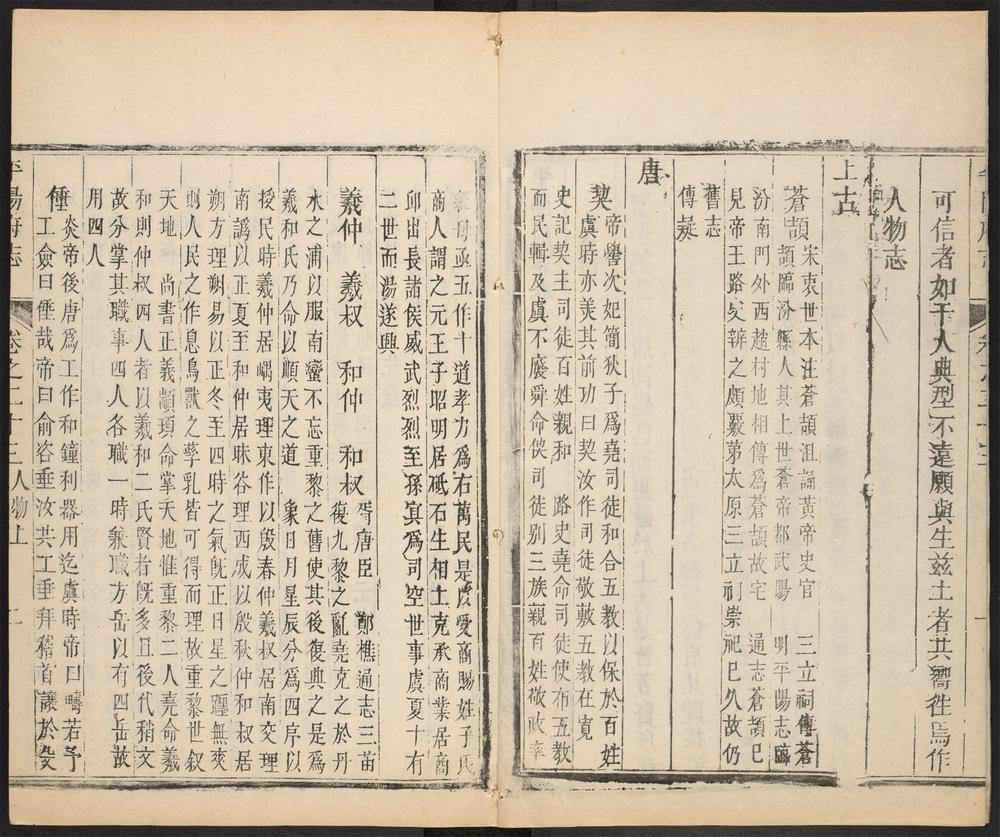 可信者如干人典型不遠願與生兹土者共嚮徃焉作
人物志
上古
蒼頡宋衷世本注蒼頡沮誦黃帝史官　三立祠傳蒼
頡臨汾縣人其上世蒼帝都武陽　明平陽志臨
汾南門外西趙村地相傳爲蒼頡故宅　通志蒼頡已
見帝王路史辨之頗覈第太原三立祠崇祀已久故仍
舊志
傳疑
唐
契帝嚳次妃簡狄子爲堯司徒和合五教以保於百姓
虞時亦美其前功曰契汝作司徒敬敷五教在寬
史記契主司徒百姓親和　路史堯命司徒使布五教
而民輯及虞不廢舜命俟司徒别三族親百姓敬政率
五作十道孝力爲右萬民是以愛商賜姓子氏
商人謂之元王子昭明居砥石生相土克承商業居商
邱出長諸侯威武烈烈至孫㝠爲司空世事虞夏十有
二世而湯遂興
羲仲　羲叔　和仲　和叔胥唐臣　鄭樵通志三苗
復九黎之亂堯克之於丹
水之浦以服南蠻不忘重黎之舊使其後復典之是爲
羲和氏乃命以順天之道　象日月星辰分爲四序以
授民時羲仲居嵎夷理東作以殷春仲羲叔居南交理
南譌以正夏至和仲居昧谷理西成以殷秋仲和叔居
朔方理朔易以正冬至四時之氣旣正日星之躔無爽
則人民之作息鳥獸之孳乳皆可得而理故重黎世叙
天地　尚書正義顓頊命掌天地惟重黎二人堯命羲
和則仲叔四人者以羲和二氏賢者旣多且後代稍文
故分掌其職事四人各職一時兼職方岳以有四岳故
用四人
倕炎帝後唐爲工作和鐘利器用迄虞時帝曰疇若予
工僉曰倕哉帝曰俞咨垂汝共工垂拜稽首讓於殳
平陽府志
卷之二十三人物上
二